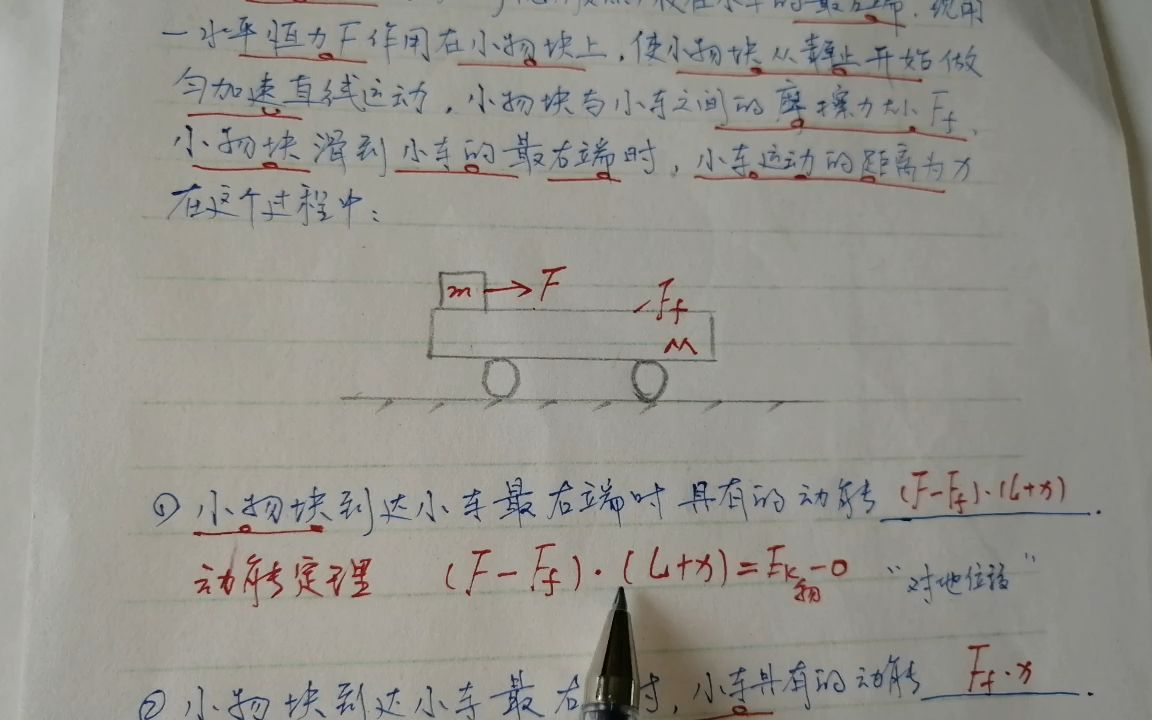 放在小车的最左端,现用
一水平恒力F作用在小物块上,使小物块从静止开始做
匀加速直线运动,小物块与小车之间的摩擦力大小Ff,
小物块滑到小车的最右端时,小车运动的距离为x
在这个过程中:
m F Ff
M
① 小物块到达小车最右端时具有的动能 (F-Ff)·(L+x).
动能定理 (F-Ff)·(L+x)=Ek物-0 “对地位移”
② 小物块到达小车最右 时,小车具有的动能 Ff·x.